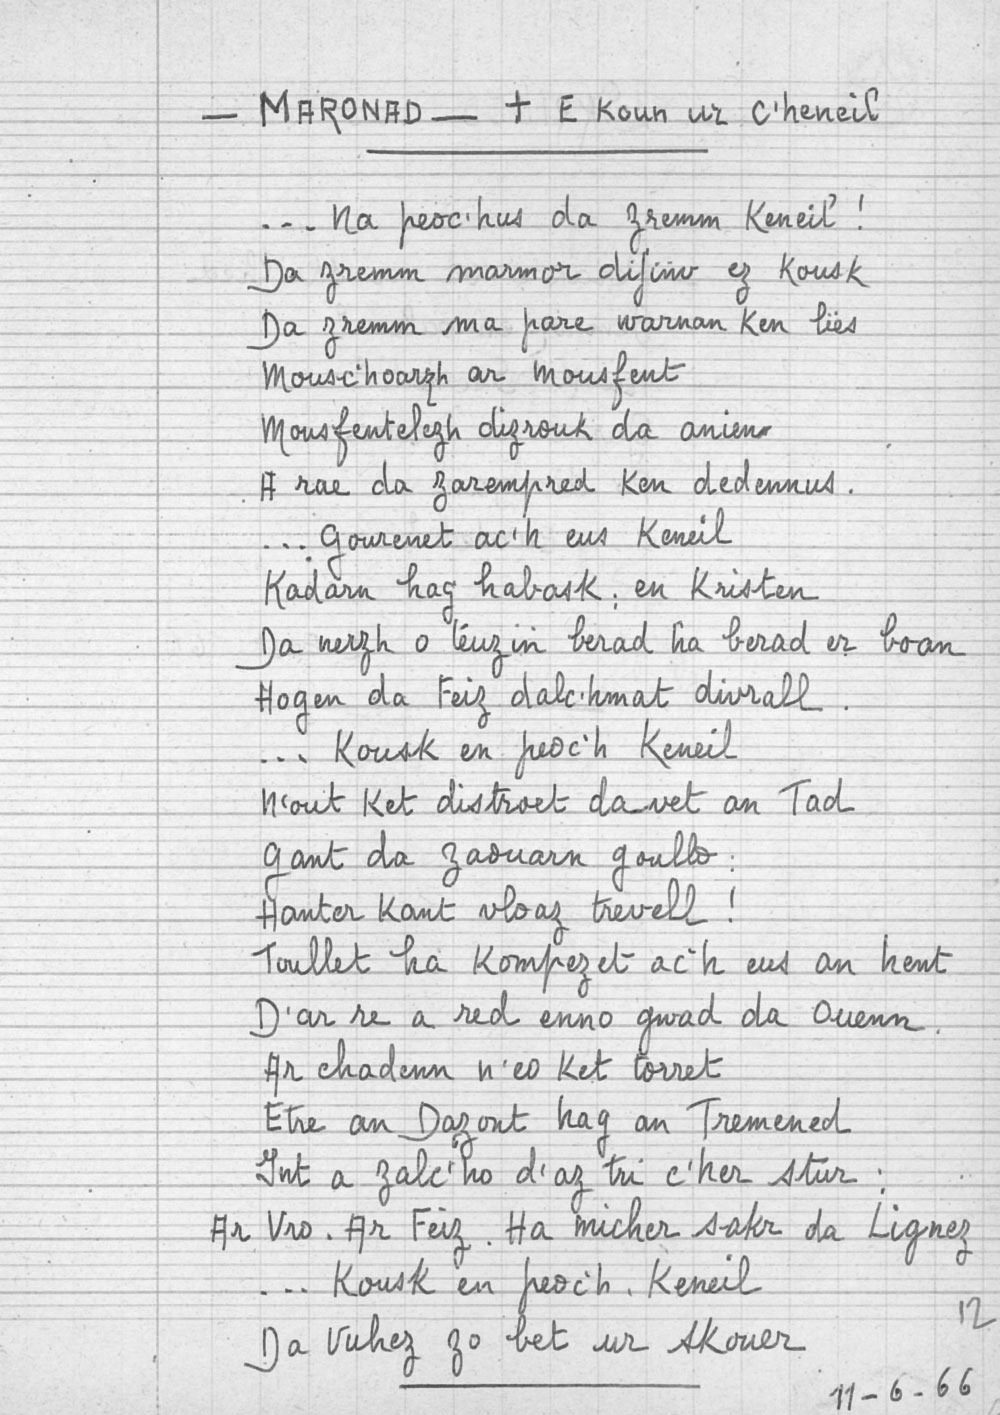 — MARONAD — + E Koun ur C'heneil
... Na peoc'hus da zremm Keneil !
Da zremm marmor difiñv ez Kousk
Da zremm ma pare warnan Ken liës
Mousc'hoarzh ar mousfent
Mousfentelezh dizrouk da anien
A rae da zarempred Ken dedennus.
... Gourenet ac'h eus Keneil
Kadarn hag habask : en Kristen
Da nerzh o teuziñ berad ha berad er boan
Hogen da Feiz dalc'hmat divrall.
... Kousk en peoc'h Keneil
N'out Ket distroet da vet an Tad
Gant da zaouarn goullo :
Hanter Kant vloaz trevell !
Toullet ha Kompezet ac'h eus an hent
D'ar re a red enno gwad da Ouenn.
Ar chadenn n'eo Ket torret
Etre an Dazont hag an Tremened
Int a zalc'ho d'az tri c'her stur :
Ar Vro. Ar Feiz. Ha micher sakr da Lignez
... Kousk en peoc'h. Keneil
Da Vuhez zo bet ur skouer
12
11-6-66